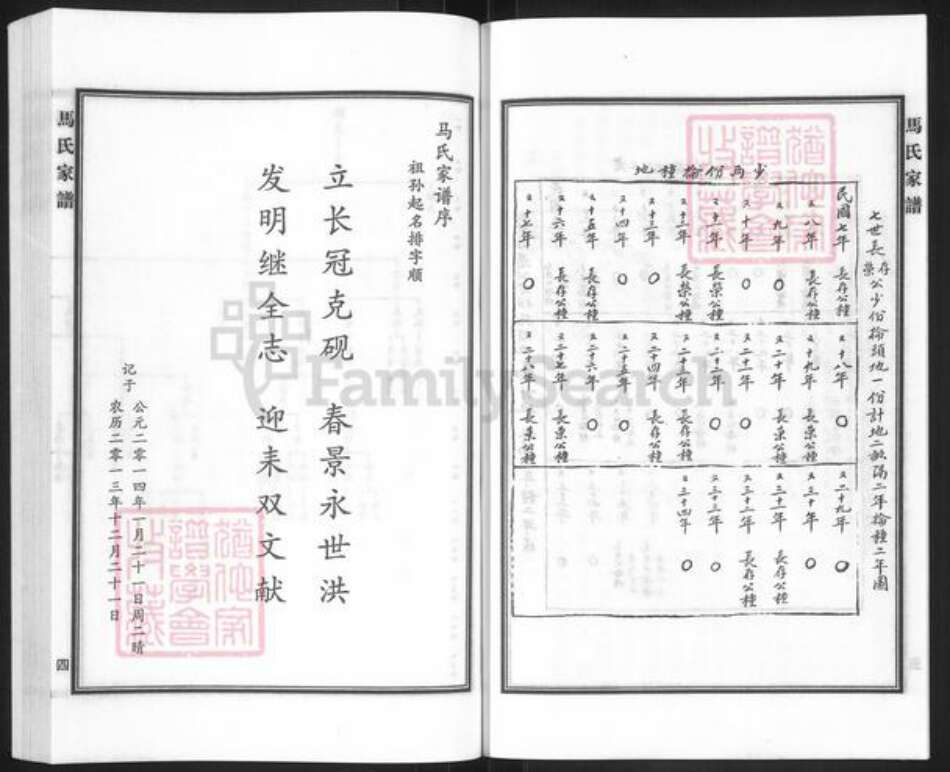 七世長存榮公少份掄頭地一份計地二畝隔二年掄種二年圖
少两份掄種地
民國七年 長存公種
又八年 長存公種
又九年 〇
又十年 〇
又十一年 長榮公種
又十二年 長榮公種
又十三年 〇
又十四年 〇
又十五年 長存公種
又十六年 長存公種
又十七年 〇
又十八年 〇
又十九年 長榮公種
又二十年 長榮公種
又二十一年 〇
又二十二年 〇
又二十三年 長存公種
又二十四年 長存公種
又二十五年 〇
又二十六年 〇
又二十七年 長榮公種
又二十八年 長榮公種
又二十九年 〇
又三十年 〇
又三十一年 長存公種
又三十二年 長存公種
又三十三年 〇
又三十四年 〇
馬氏家譜
马氏家谱序
祖孙起名排字顺
立长冠克砚 春景永世洪
发明继全志 迎来双文献
记于
公元二零一四年一月二十一日周二晴
农历二零一三年十二月二十一日
馬氏家譜
四
FamilySearch